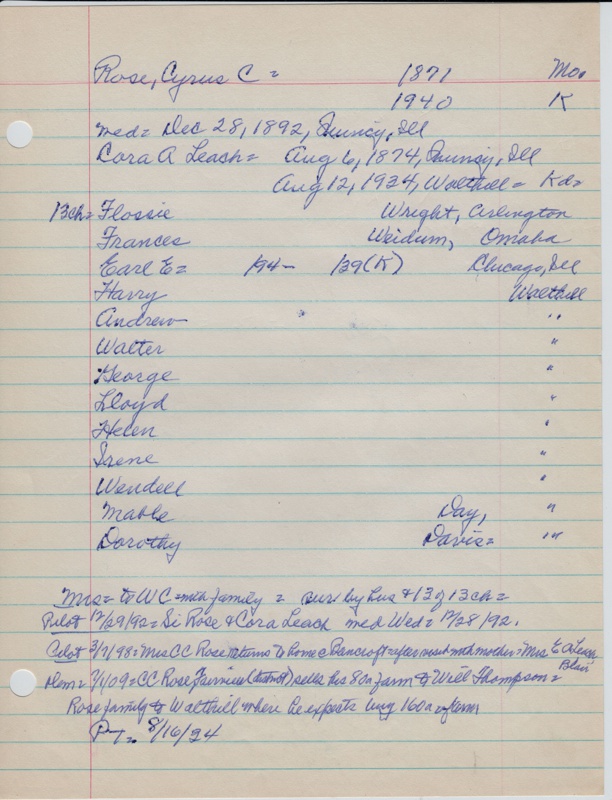 Rose, Cyrus C = 1871 Mo.
1940 K
med = Dec 28, 1892, Quincy, Ill
Cora A Leach = Aug 6, 1874, Quincy, Ill
Aug 12, 1934, Walthill = Kd =
13ch = Flossie Wright, Arlington
Frances Weidum, Omaha
Earl E = 194- 139 (K) Chicago, Ill
Harry Walthill
Andrew "
Walter "
George "
Lloyd "
Helen "
Irene "
Wendell "
Mable Day, "
Dorothy Davis = "
Mrs = to WC = with family = surv by hus & 13 of 13 ch =
Pilot 12/29/92 = Si Rose & Cora Leach med Wed = 12/28/92.
Pilot 3/9/98 = Mrs CC Rose returns to home @ Bancroft = after with mother = Mrs E A Leach
Blair
7/1/09 = CC Rose Fairview (district) sells his 80a farm to Will Thompson =
Rose family to Walthill where he expects buy 160a farm
PT = 8/16/34